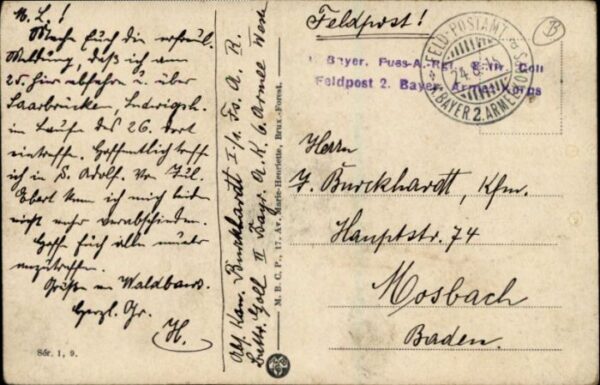 M. L.!
Mache Euch die erfreul.
Meldung, daß ich am
25. hier abfahre u. über
Saarbrücken, Ludwigsh.
im Laufe des 26. dort
eintreffe. Hoffentlich treffe
ich in H. Adolf. Von Jul.
Ebert kann ich mich leider
nicht mehr verabschieden.
Hoffe Euch alle munter
anzutreffen.
Grüße an
Herzl. Gr.
H.
Sér. 1, 9.
Abs. Kan. Burckhardt I./1. Fs. A. R.
Battr. Goll II Bayr. A. K. 6. Armee West
M. B. C. P., 17, Av. Marie-Henriette, Brux.-Forest.
Feldpost!
Bayer. Fuss-A. Goll
Feldpost 2. Bayer. Armee Korps
FELD-POSTAMT
24. 8.
BAYER. 2. ARMEEKORPS
B
Herrn
J. Burckhardt, Kfm.
Hauptstr. 74
Mosbach
Baden.